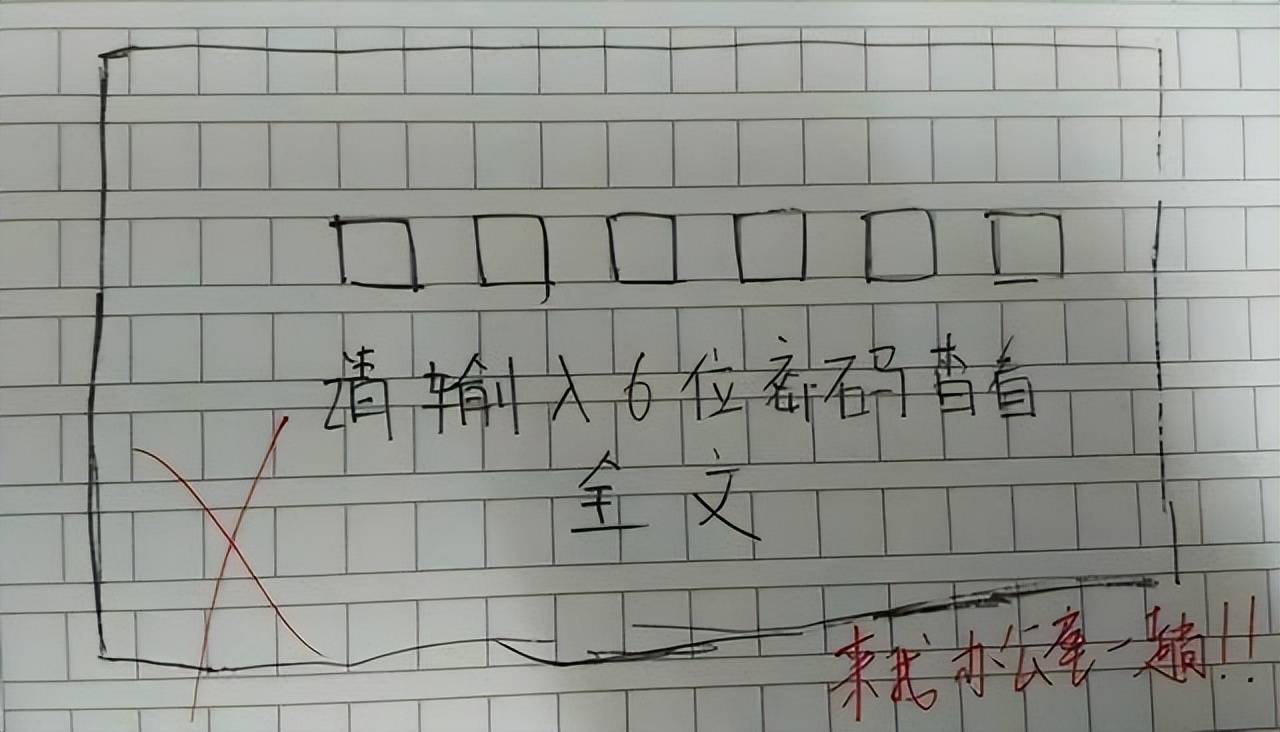 □□□□□□
请输入6位密码查看
全文
来我办公室一趟!!